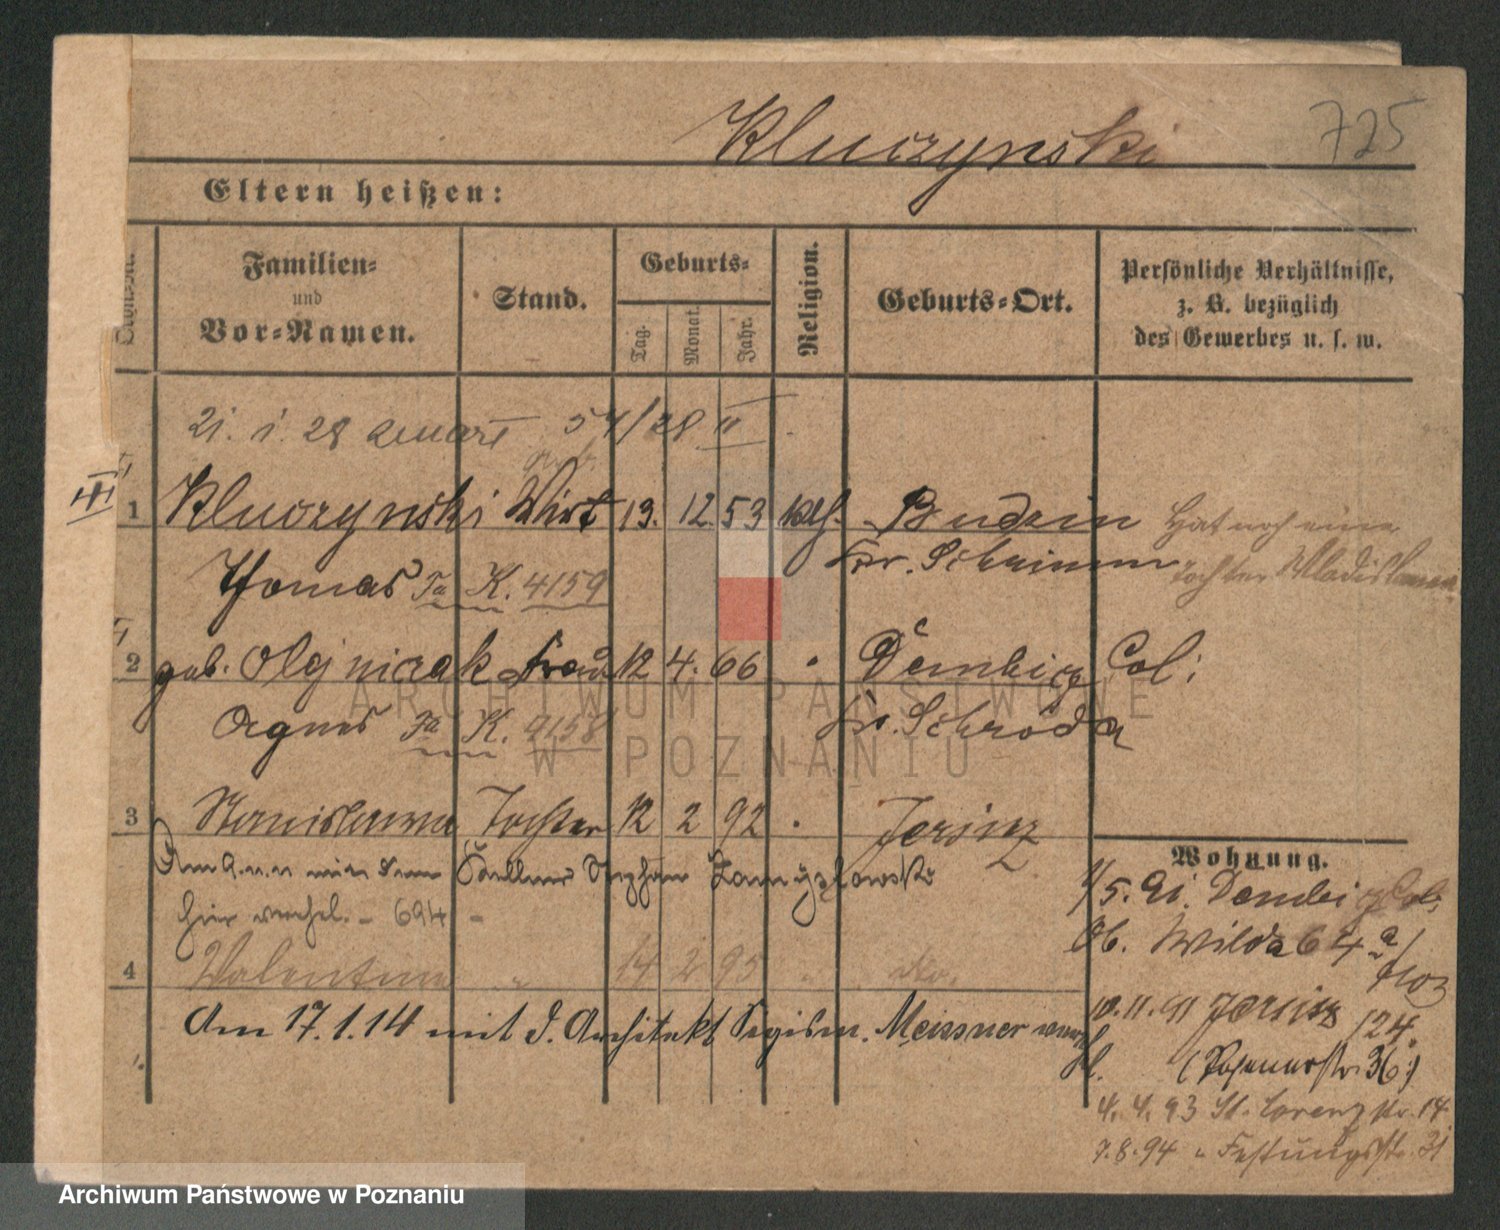 Kluczynski 725
Eltern heißen:
Familien= und Vor=Namen.
Stand.
Geburts=
Tag. Monat. Jahr.
Religion.
Geburts=Ort.
Persönliche Verhältnisse,
z. B. bezüglich
des Gewerbes u. s. w.
III
1 Kluczynski Wirt 13. 12. 53 kth. Budzin Hat noch eine
Thomas K. 4159 Kr. Schrimm Tochter Wladislawa
2 geb. Olejniczak Frau 12 4. 66 Dembicz Col.
Agnes K. 4158 Kr. Schroda
3 Stanislawa Tochter 12 2 92 Jersitz
mit dem Kellner Stephan
hier verehel. - 694 -
4 Valentine " 14 2 95 " do.
Am 17.1.14 mit d. Architekt Sigism. Meissner
Wohnung.
5. 91. Dembicz Col.
Ob. Wilda 64a
10.11.91 Jersitz 124.
(Posenerstr. 36.)
4. 4. 93 St. Lorenzstr. 14
7.8.94 " Festungsstr. 31
ARCHIWUM PAŃSTWOWE
W POZNANIU
Archiwum Państwowe w Poznaniu